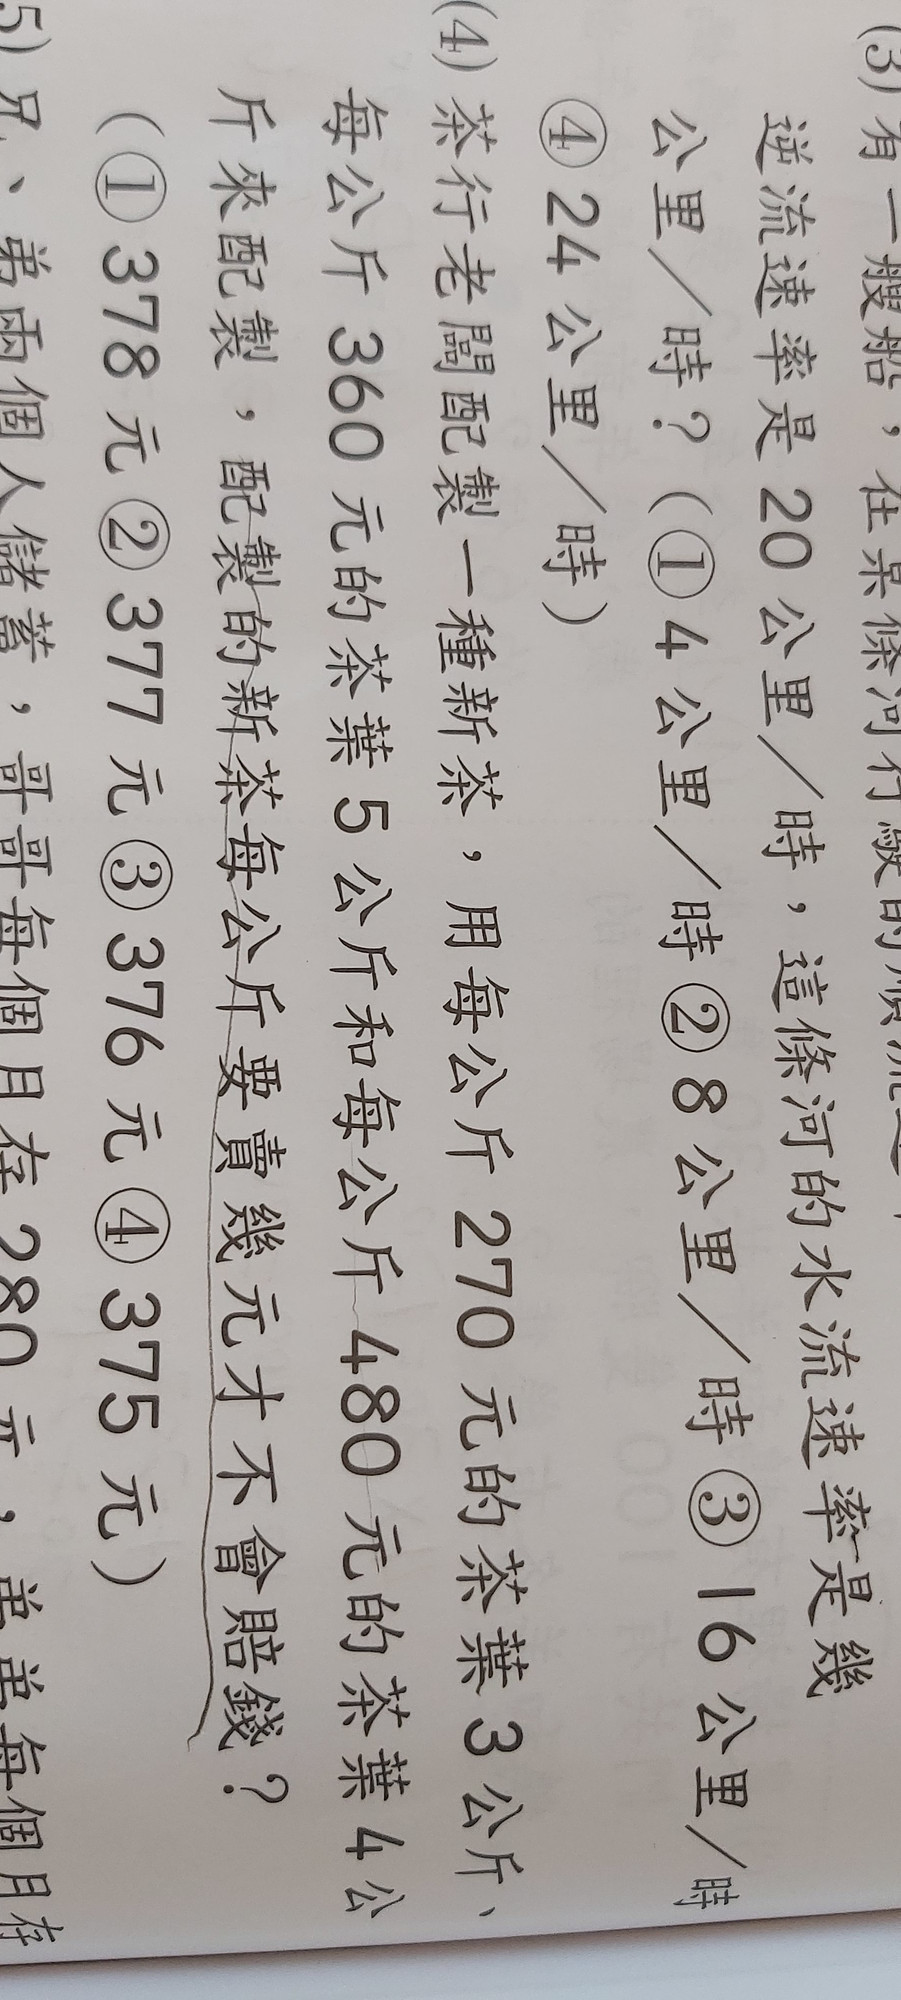 (3) 有一艘船，在某條河行駛的順流速
逆流速率是 20 公里／時，這條河的水流速率是幾
公里／時？（① 4 公里／時 ② 8 公里／時 ③ 16 公里／時
④ 24 公里／時）
(4) 茶行老闆配製一種新茶，用每公斤 270 元的茶葉 3 公斤、
每公斤 360 元的茶葉 5 公斤和每公斤 480 元的茶葉 4 公
斤來配製，配製的新茶每公斤要賣幾元才不會賠錢？
（① 378 元 ② 377 元 ③ 376 元 ④ 375 元）
5) 兄、弟兩個人儲蓄，哥哥每個月存 280 元，弟弟每個月存